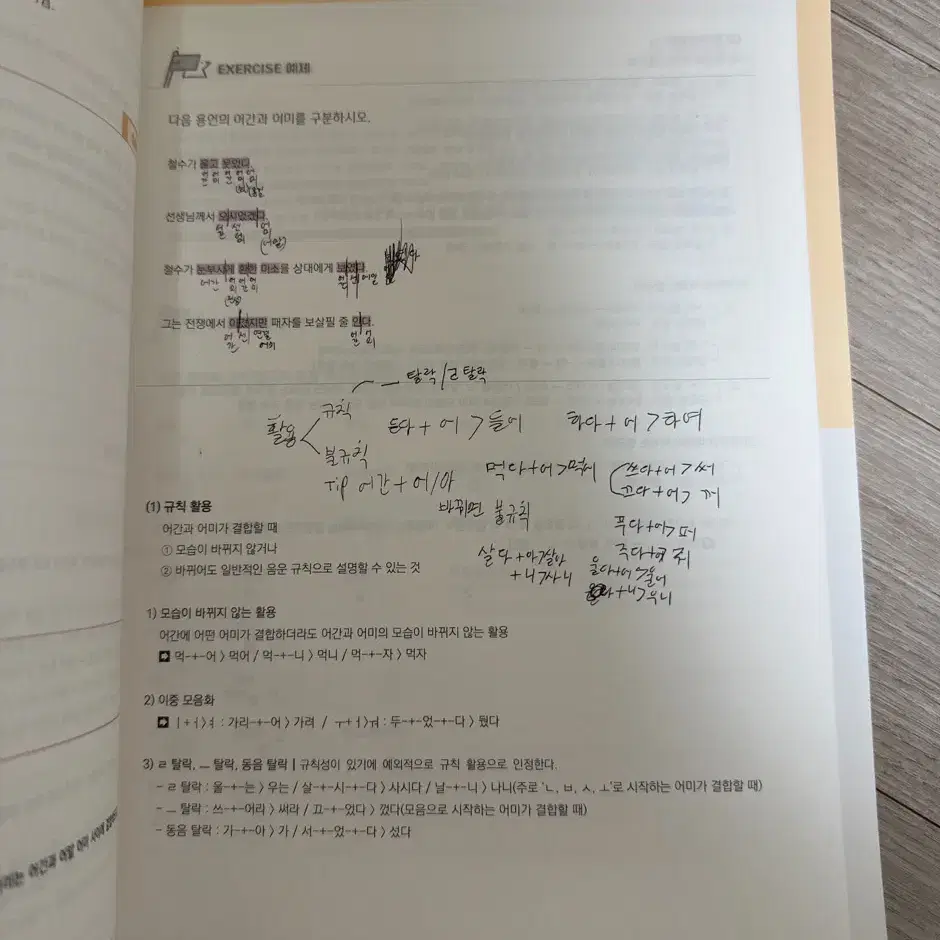 EXERCISE 예제
다음 용언의 어간과 어미를 구분하시오.
철수가 울고 웃었다.
선생님께서 오시었겠다.
철수가 눈부시게 환한 미소를 상대에게 보였다.
어간
그는 전쟁에서 이겼지만 패자를 보살필 줄 안다.
탈락/ㄹ탈락
활용
규칙
듣다 + 어 > 들어
하다 + 어 > 하여
불규칙
Tip 어간 + 어/아
먹다+어>먹어
쓰다+어>써
끄다+어>꺼
바뀌면 불규칙
푸다+어>퍼
살다+아>살아
+니>사니
울다+어>울어
+니>우니
(1) 규칙 활용
어간과 어미가 결합할 때
① 모습이 바뀌지 않거나
② 바뀌어도 일반적인 음운 규칙으로 설명할 수 있는 것
1) 모습이 바뀌지 않는 활용
어간에 어떤 어미가 결합하더라도 어간과 어미의 모습이 바뀌지 않는 활용
먹-+-어 > 먹어 / 먹-+-니 > 먹니 / 먹-+-자 > 먹자
2) 이중 모음화
ㅣ+ㅓ>ㅕ : 가리-+-어 > 가려 / ㅜ+ㅓ>ㅝ : 두-+-었-+-다 > 뒀다
3) ㄹ 탈락, ㅡ 탈락, 동음 탈락 | 규칙성이 있기에 예외적으로 규칙 활용으로 인정한다.
- ㄹ 탈락 : 울-+-는 > 우는 / 살-+-시-+-다 > 사시다 / 날-+-니 > 나니(주로 'ㄴ, ㅂ, ㅅ, ㅗ'로 시작하는 어미가 결합할 때)
- ㅡ 탈락 : 쓰-+-어라 > 써라 / 끄-+-었다 > 껐다(모음으로 시작하는 어미가 결합할 때)
- 동음 탈락 : 가-+-아 > 가 / 서-+-었-+-다 > 섰다